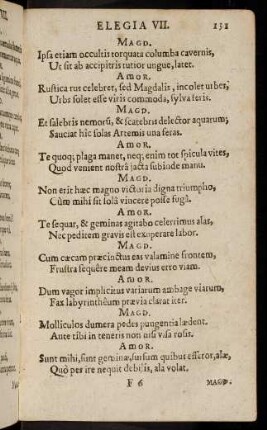 ELEGIA VII. 131
MAGD.
Ipsa etiam occultis torquata columba cavernis,
Ut sit ab accipitris tutior ungue, latet.
AMOR.
Rustica rus celebret, sed Magdalis, incolet urbes,
Urbs solet esse viris commoda, sylva feris.
MAGD.
Et salebris nemorũ, & scatebris delector aquarum;
Sauciat hîc solas Artemis una feras.
AMOR.
Te quoq; plaga manet, neq; enim tot spicula vites,
Quod venient nostrâ jacta subinde manu.
MAGD.
Non erit hæc magno victoria digna triumpho,
Cùm mihi sit solâ vincere posse fugâ.
AMOR.
Te sequar, & geminas agitabo celerrimus alas,
Nec peditem gravis est exoperare labor.
MAGD.
Cum cæcam præcinctus eas valamine frontem,
Frustra sequêre meam devius erro viam.
AMOR.
Dum vagor implicitus variarum ambage viarum,
Fax labyrinthêum prævia clarat iter.
MAGD.
Molliculos dumera pedes pungentia lædent.
Ante tibi in teneris non nisi visa rosis.
AMOR.
Sunt mihi, sunt geminæ, sursum quibus efferor, alæ,
Quò per ire nequit debilis, ala volat.
F 6 MAGD.